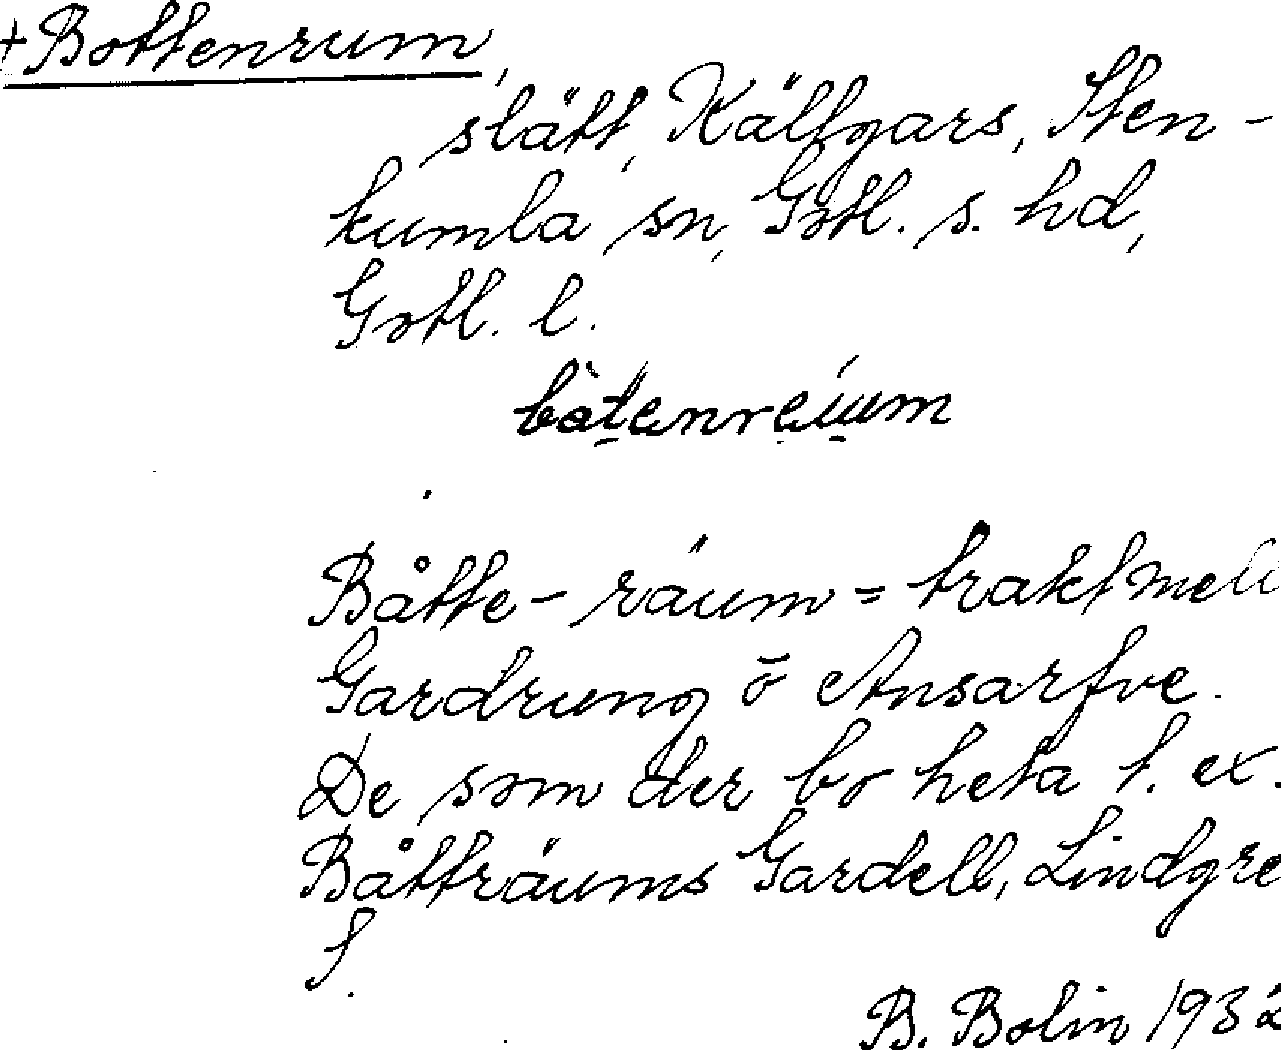 +Bottenrum,
slätt, Källgars, Sten-
kumla sn, Gotl. s. hd,
Gotl. l.
båtenräum
Båtte-räum = trakt mell
Gardrung o Ansarfve.
De som der bo heta t. ex.
Båtträums Gardell, Lindgre
f.
B. Bolin 1932